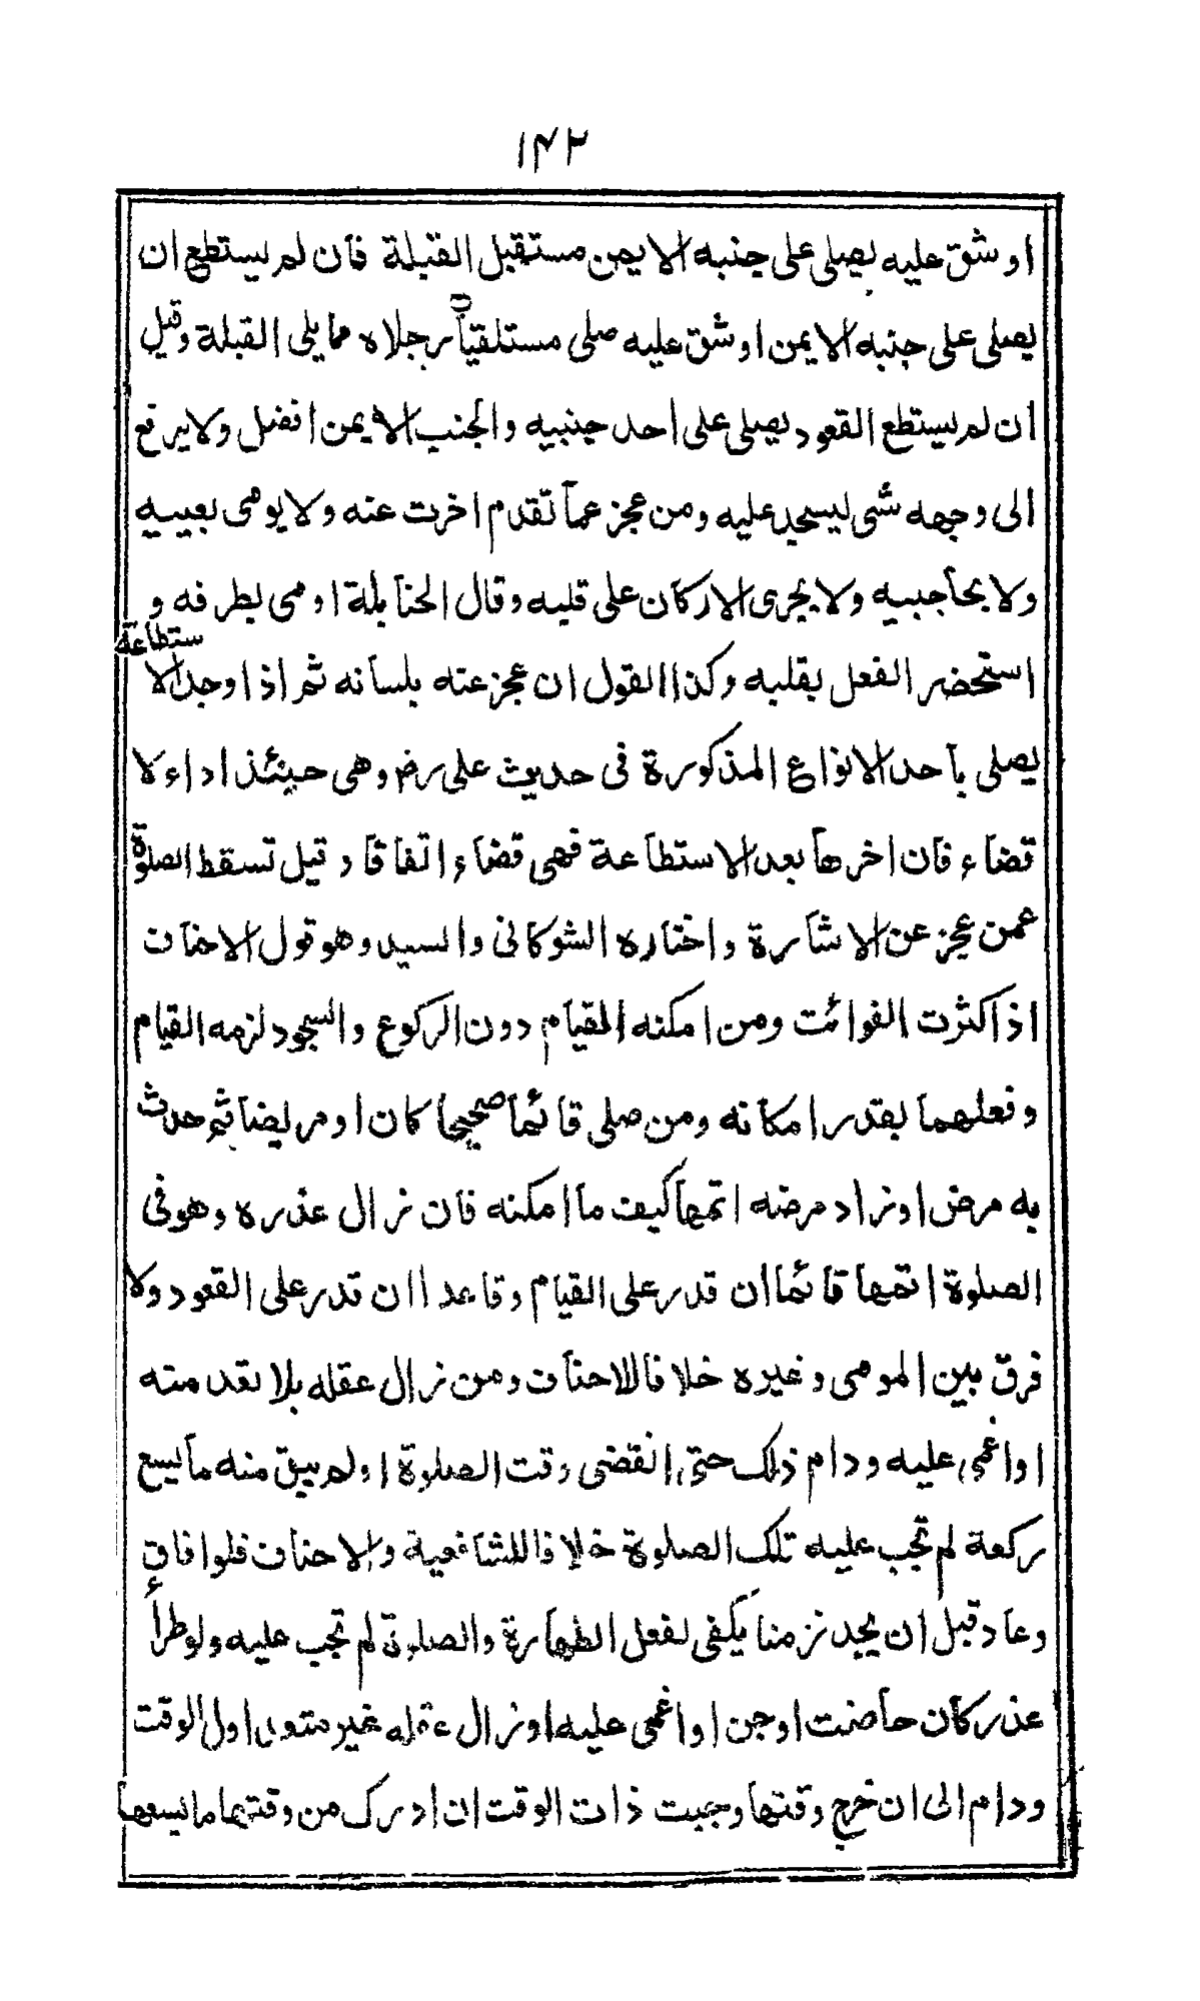 ۱۴۲
او شق عليه يصلى على جنبه الايمن مستقبل القبلة فان لم يستطع ان
يصلى على جنبه الايمن او شق عليه صلى مستلقيا رجلاه مما يلى القبلة وقيل
ان لم يستطع القعود يصلى على احد جنبيه والجنب الايمن افضل ولا يرفع
الى وجهه شى ليسجد عليه ومن عجز عما تقدم اخرت عنه ولا يومى بعينيه
ولا بحاجبيه ولا يجرى الاركان على قلبه وقال الحنابلة اومى بطرفه و
استحضر الفعل بقلبه وكذا القول ان عجز عنه بلسانه ثم اذا وجد الاستطاعة
يصلى باحد الانواع المذكورة فى حديث على رض وهى حينئذ اداء لا
قضاء فان اخرها بعد الاستطاعة فهى قضاء اتفاقا وقيل تسقط الصلوة
عمن عجز عن الاشارة واختاره الشوكانى والسيد وهو قول الاحناف
اذا كثرت الفوائت ومن امكنه القيام دون الركوع والسجود لزمه القيام
وفعلهما بقدر امكانه ومن صلى قائما صحيحا كان او مريضا ثم حدث
به مرض او زاد مرضه اتمها كيف ما امكنه فان زال عذره وهو فى
الصلوة اتمها قائما ان قدر على القيام وقاعدا ان قدر على القعود ولا
فرق بين المومى وغيره خلافا للاحناف ومن زال عقله بلا تعد منه
او اغمى عليه ودام ذلك حتى انقضى وقت الصلوة او لم يبق منه ما يسع
ركعة لم تجب عليه تلك الصلوة خلافا للشافعية والاحناف فلو افاق
وعاد قبل ان يجد زمنا يكفى لفعل الطهارة والصلوة لم تجب عليه ولو طرأ
عذر كان حاضت او جن او اغمى عليه او زال عقله غير متعد اول الوقت
ودام الى ان خرج وقتها وجبت ذات الوقت ان ادرك من وقتها ما يسعها